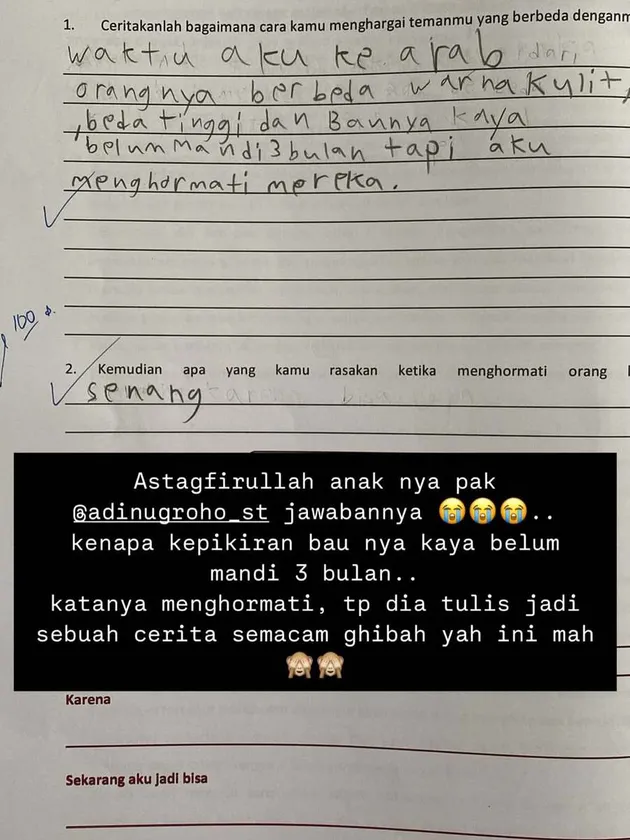 1. Ceritakanlah bagaimana cara kamu menghargai temanmu yang berbeda denganm
waktu aku ke arab
orangnya berbeda warna kulit,
,beda tinggi dan Baunya kaya
belum mandi 3 bulan tapi aku
menghormati mereka.
100
2. Kemudian apa yang kamu rasakan ketika menghormati orang
senang
Astagfirullah anak nya pak
@adinugroho_st jawabannya 😭😭😭..
kenapa kepikiran bau nya kaya belum
mandi 3 bulan..
katanya menghormati, tp dia tulis jadi
sebuah cerita semacam ghibah yah ini mah
🙈🙈
Karena
Sekarang aku jadi bisa